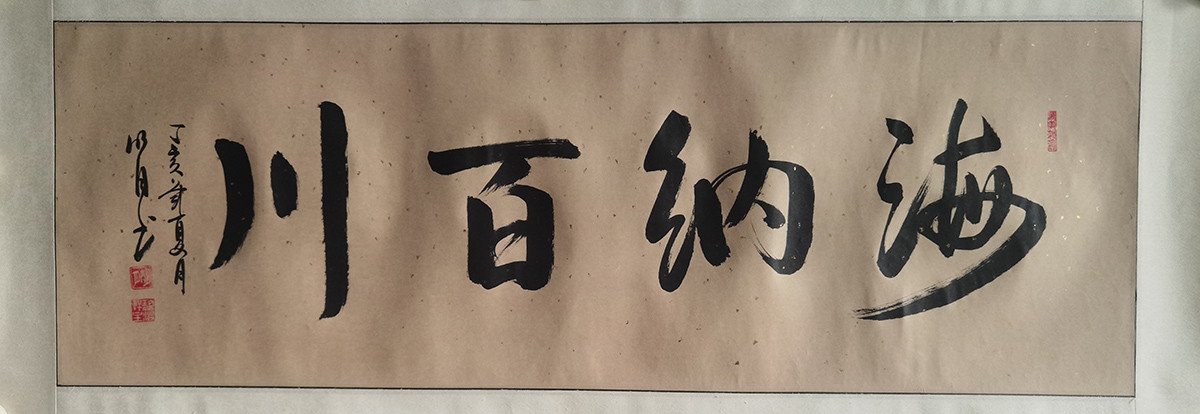 海纳百川
丁亥年夏月
明月书